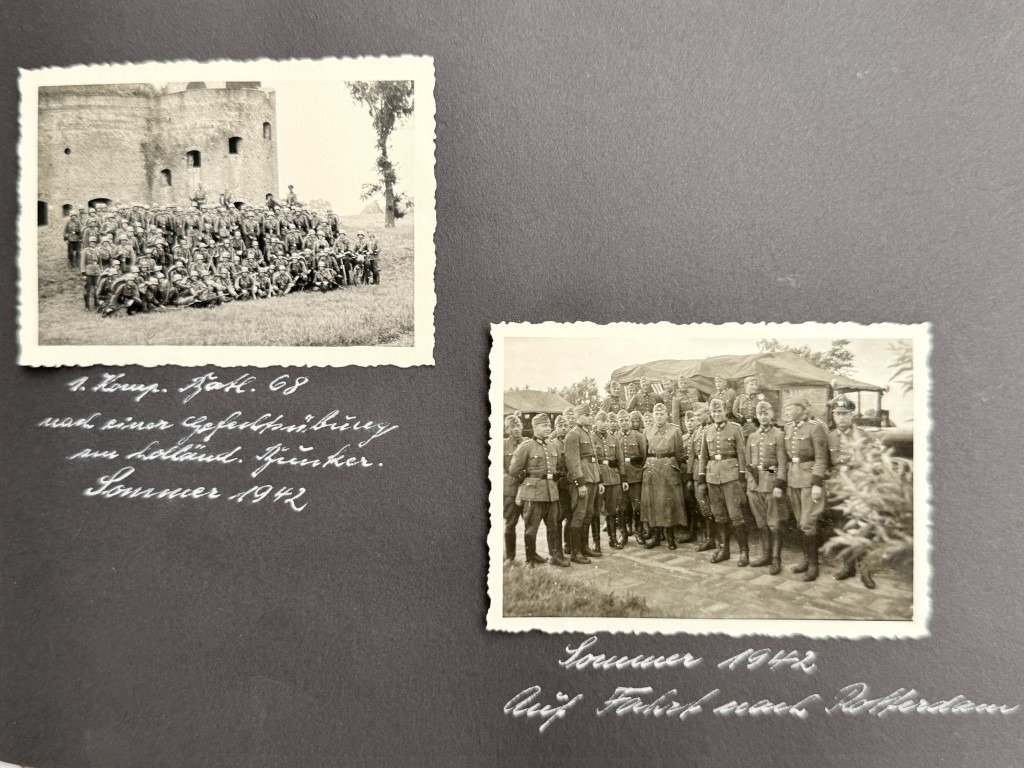 1. Komp. Batl. 68
nach einer Gefechtsübung
am holländ. Bunker.
Sommer 1942
Sommer 1942
Auf Fahrt nach Rotterdam